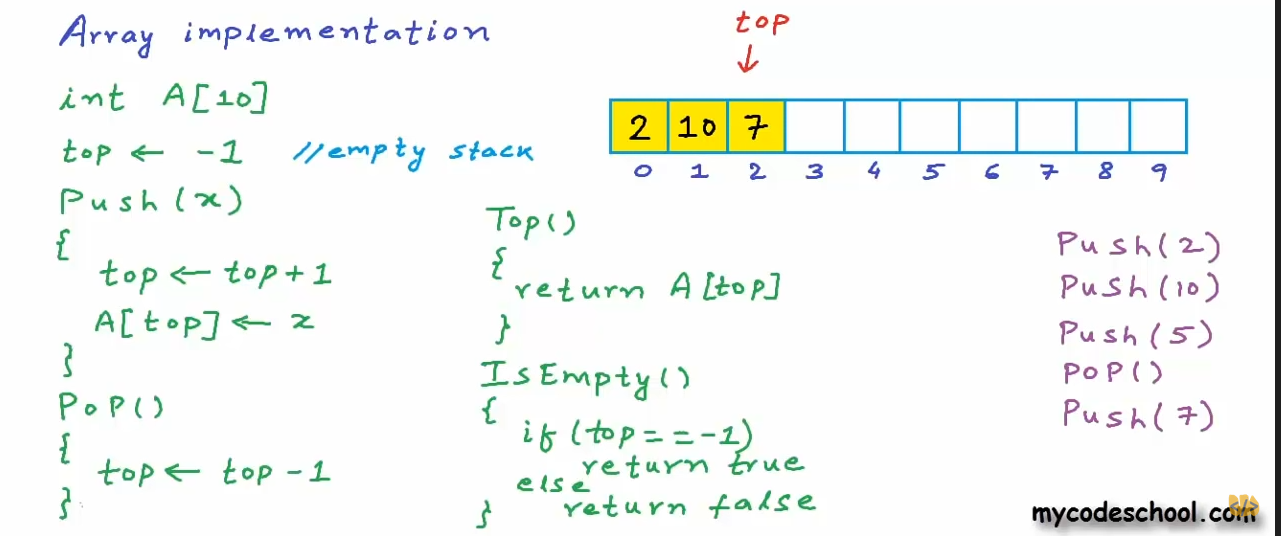 Array implementation
int A[10]
top ← -1 //empty stack
Push(x)
{
top ← top+1
A[top] ← x
}
Pop()
{
top ← top -1
}
top
↓
2 10 7
0 1 2 3 4 5 6 7 8 9
Top()
{
return A[top]
}
IsEmpty()
{
if (top == -1)
return true
else
return false
}
Push(2)
Push(10)
Push(5)
Pop()
Push(7)
mycodeschool.com